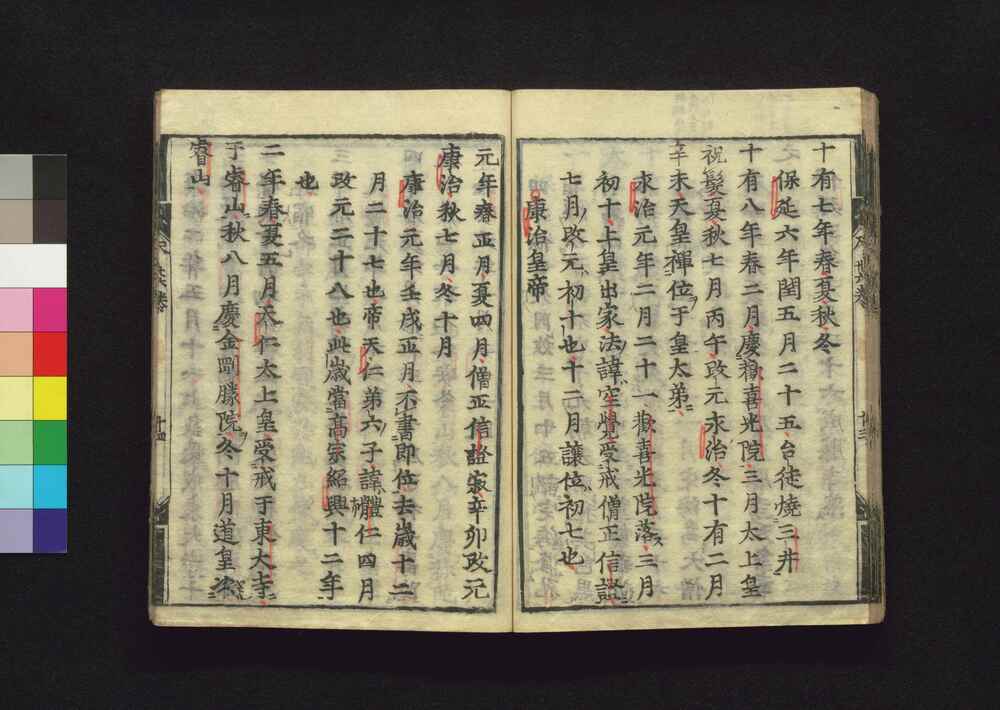 十有七年春夏秋冬
保延六年閏五月二十五台徒燒三井
十有八年春二月慶歡喜光院三月太上皇
祝髮夏秋七月丙午改元永治冬十有二月
辛未天皇禪位于皇太弟
永治元年二月二十一歡喜光院落三月
初十上皇出家法諱空覺受戒僧正信證
七月改元初十也十二月讓位初七也
康治皇帝
元年春正月夏四月僧正信證寂辛卯改元
康治秋七月冬十月
康治元年壬戌正月不書即位去歲十二
月二十七也帝天仁弟六子諱體仁四月
改元二十八也此歲當高宗紹興十二年
也
二年春夏五月天仁太上皇受戒于東大寺
于睿山秋八月慶金剛勝院冬十月道皇
睿山